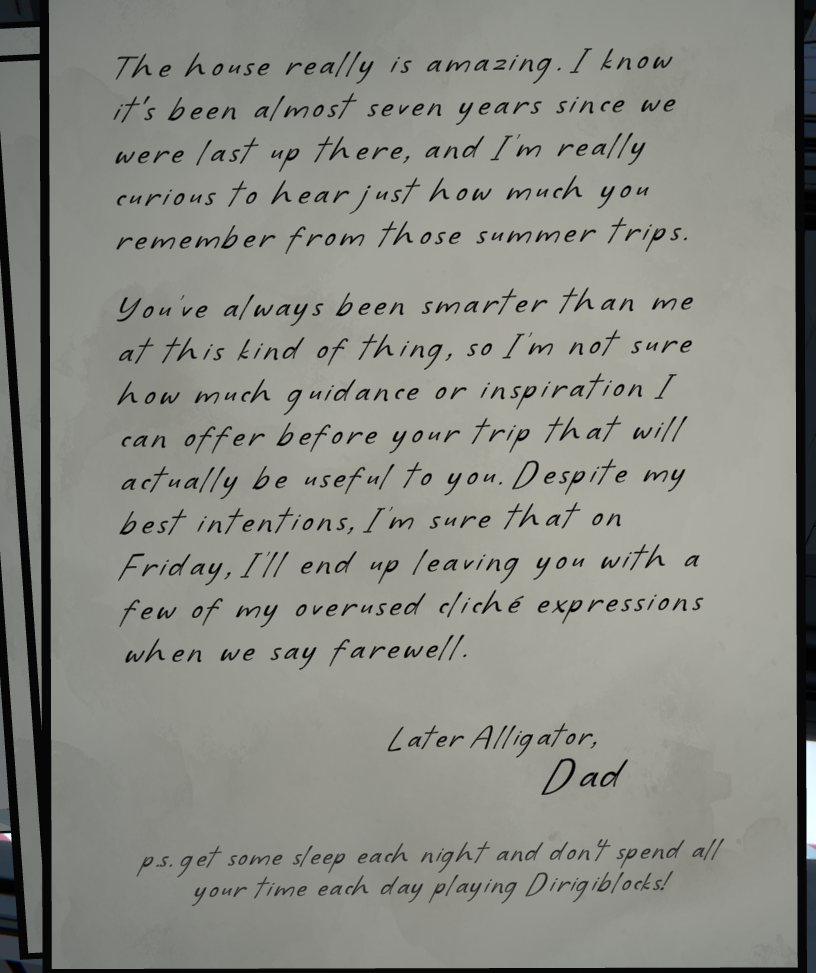 The house really is amazing. I know
it's been almost seven years since we
were last up there, and I'm really
curious to hear just how much you
remember from those summer trips.
You've always been smarter than me
at this kind of thing, so I'm not sure
how much guidance or inspiration I
can offer before your trip that will
actually be useful to you. Despite my
best intentions, I'm sure that on
Friday, I'll end up leaving you with a
few of my overused cliché expressions
when we say farewell.
Later Alligator,
Dad
p.s. get some sleep each night and don't spend all
your time each day playing Dirigiblocks!